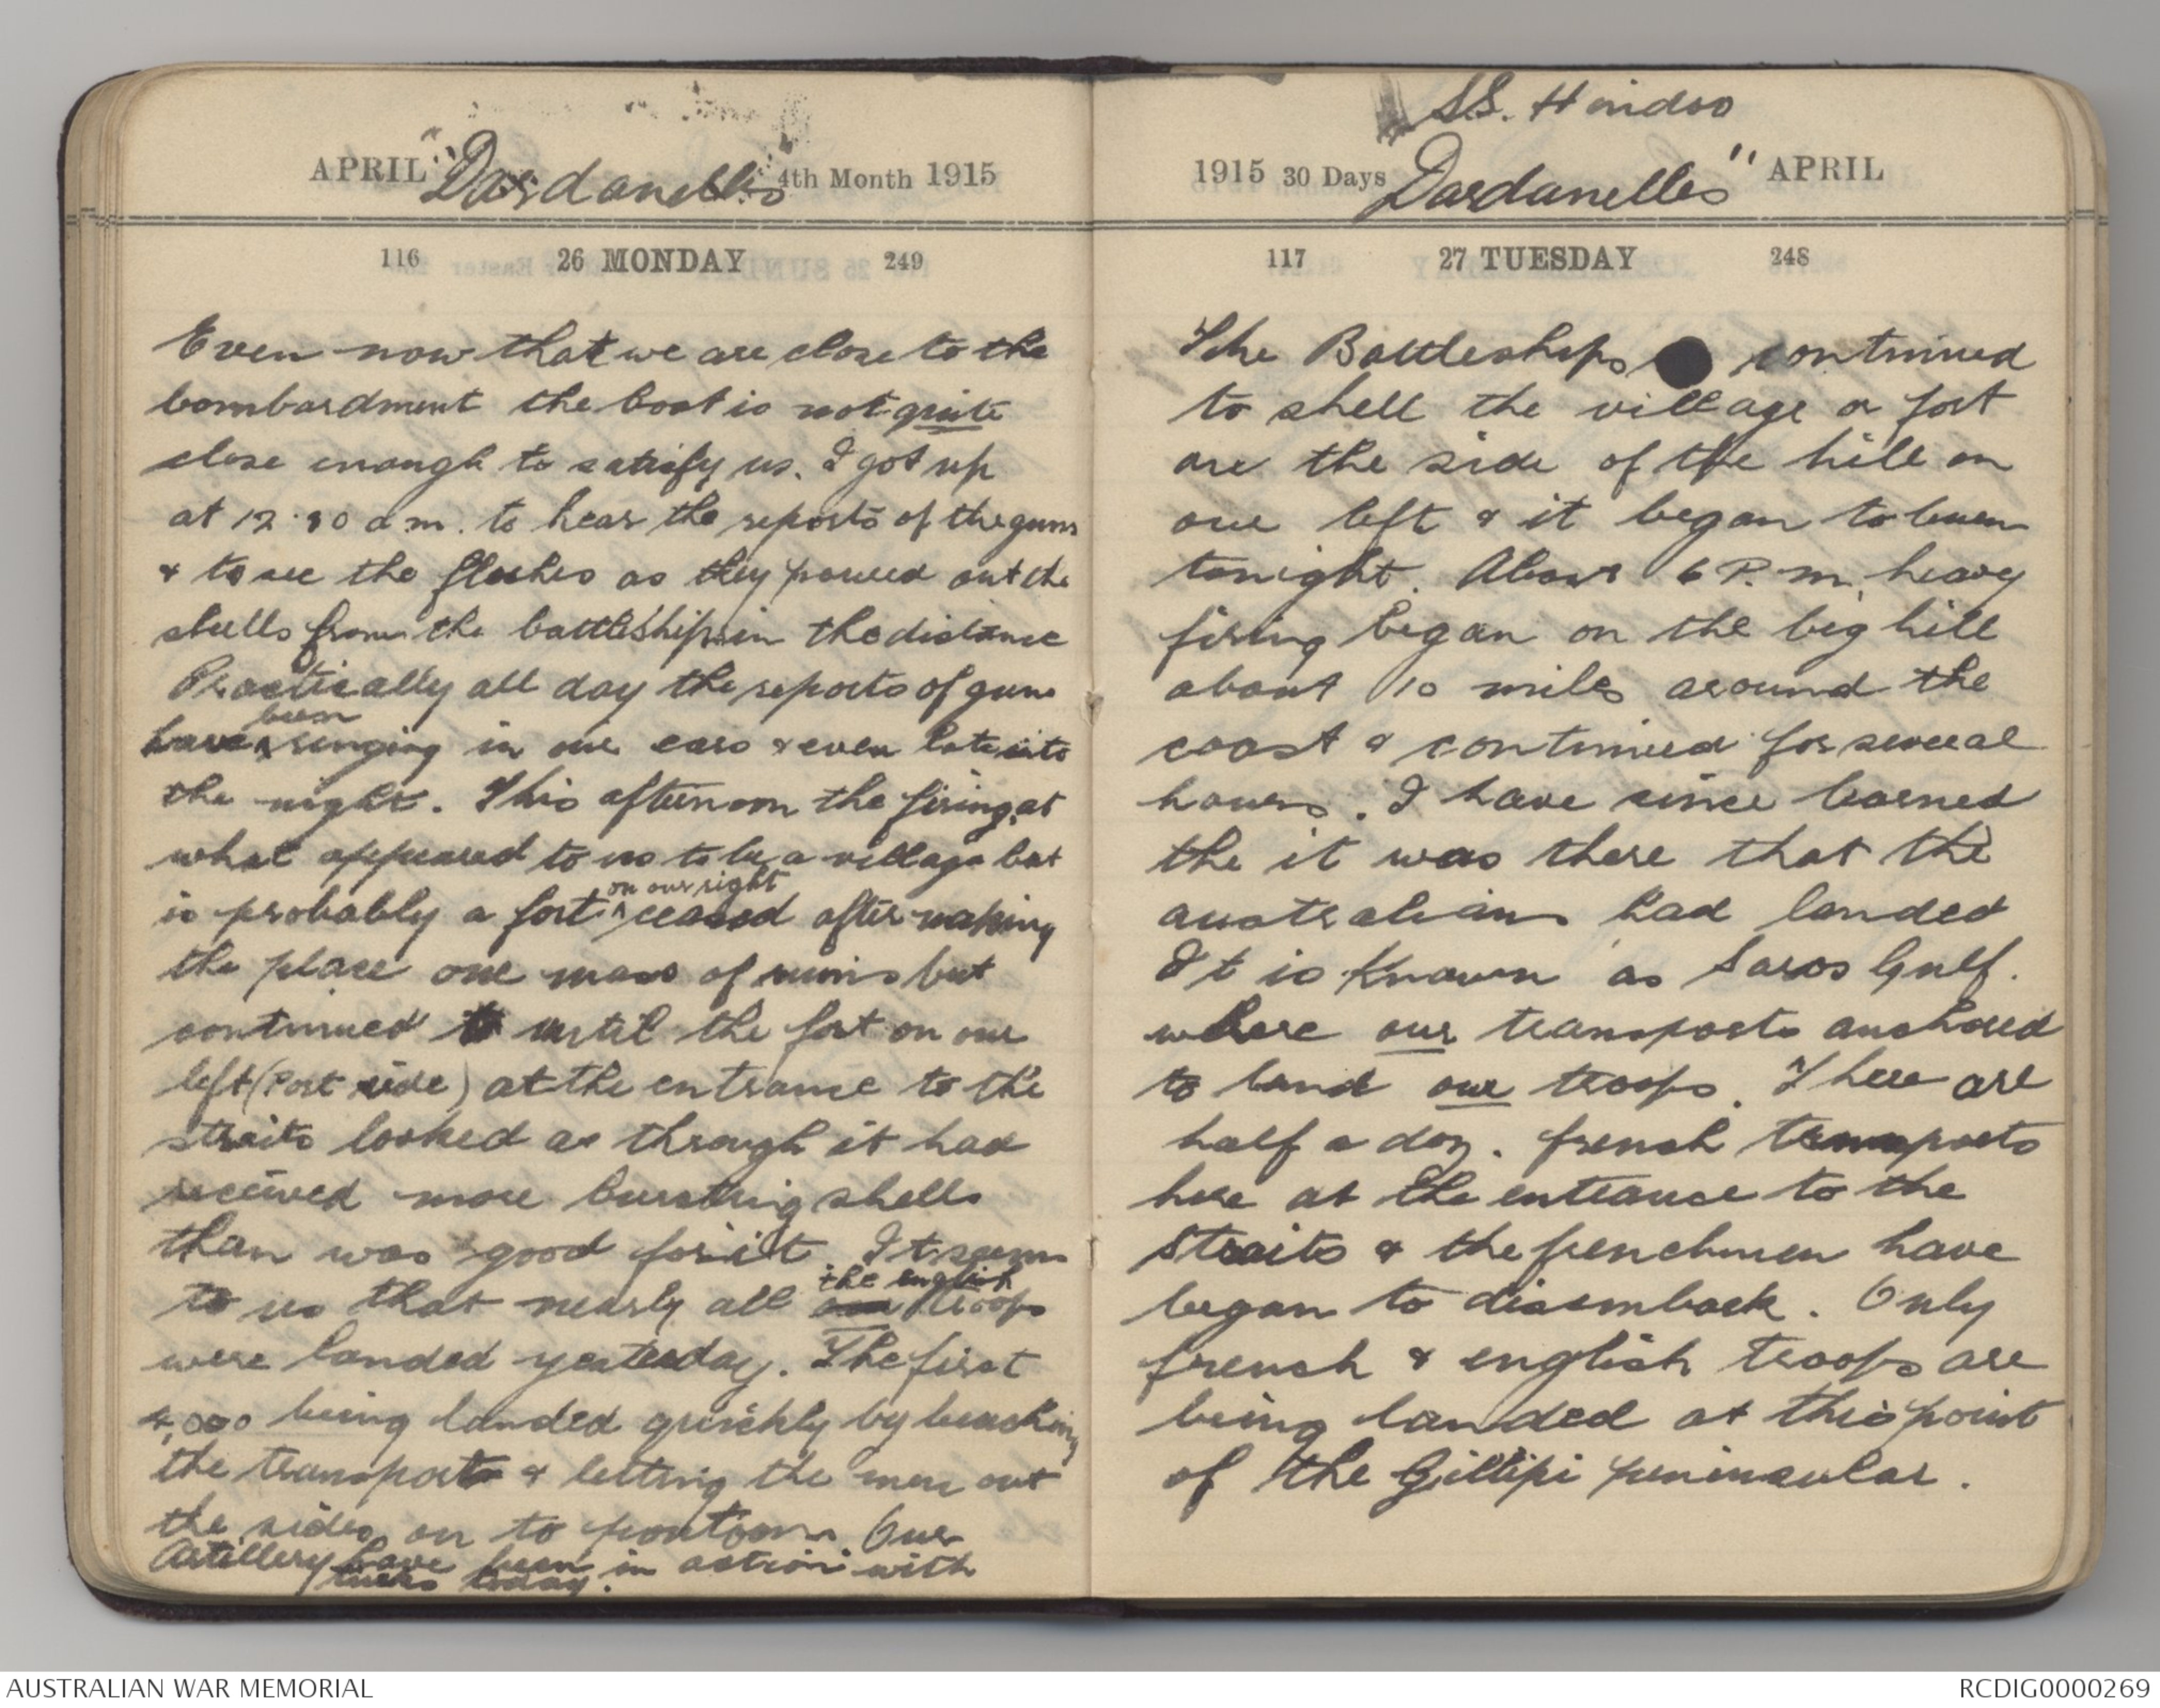 APRIL "Dardanelles" 4th Month 1915
116 26 MONDAY 249
Even now that we are close to the
bombardment the boat is not quite
close enough to satisfy us. I got up
at 12.30 a m. to hear the reports of the guns
& to see the flashes as they poured out the
shells from the battleships in the distance
Practically all day the reports of guns
have been ringing in our ears & even late into
the night. This afternoon the firing at
what appeared to us to be a village but
is probably a fort on our right ceased after making
the place one mass of ruins but
continued until the fort on our
left (Port side) at the entrance to the
straits looked as through it had
received more bursting shells
than was good for it. It seems
to us that nearly all the english troops
were landed yesterday. The first
4,000 being landed quickly by beaching
the transports & letting the men out
the sides on to pontoons. Our
Artillery have been in action with
turks today.
S.S. Hindoo
1915 30 Days Dardanelles" APRIL
117 27 TUESDAY 248
The Battleships continued
to shell the village or fort
are the side of the hill on
our left & it began to burn
tonight. About 6 P.m. heavy
firing began on the big hill
about 10 miles around the
coast & continued for several
hours. I have since learned
the it was there that the
australians had landed
It is known as Saros Gulf.
where our transports anchored
to land our troops. There are
half a doz. french transports
here at the entrance to the
Straits & the frenchmen have
began to disembark. Only
french & english troops are
being landed at this point
of the Gillipi peninsular.
AUSTRALIAN WAR MEMORIAL
RCDIG0000269